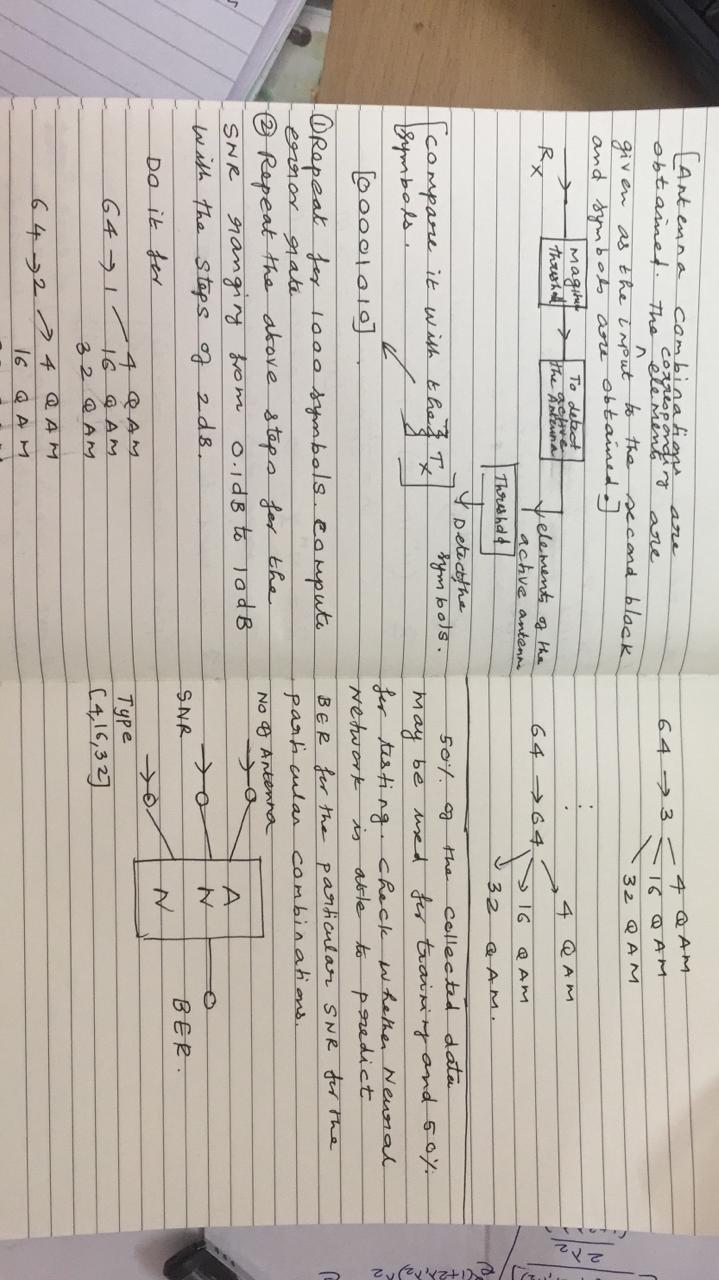 [Antenna combinations are
obtained. The corresponding elements are
given as the input to the second block
and symbols are obtained.]
Rx
Magitue
threshold
To detect
active
the Antenna
elements of the
active antenna
Threshold
Detect the
symbols.
[Compare it with the Tx]
symbols.
[00001010].
① Repeat for 1000 symbols. compute
error rate
② Repeat the above steps for the
SNR ranging from 0.1dB to 10dB
with the steps of 2dB.
Do it for
64 → 1
4 QAM
16 QAM
32 QAM
64 → 2 → 4 QAM
16 QAM
64 → 3
4 QAM
16 QAM
32 QAM
⋮
64 → 64
4 QAM
16 QAM
32 QAM.
50% of the collected data
may be used for training and 50%
for testing. Check whether Neural
Network is able to predict
BER for the particular SNR for the
particular combinations.
No of Antenna
SNR
Type
[4,16,32]
A
N
N
BER.